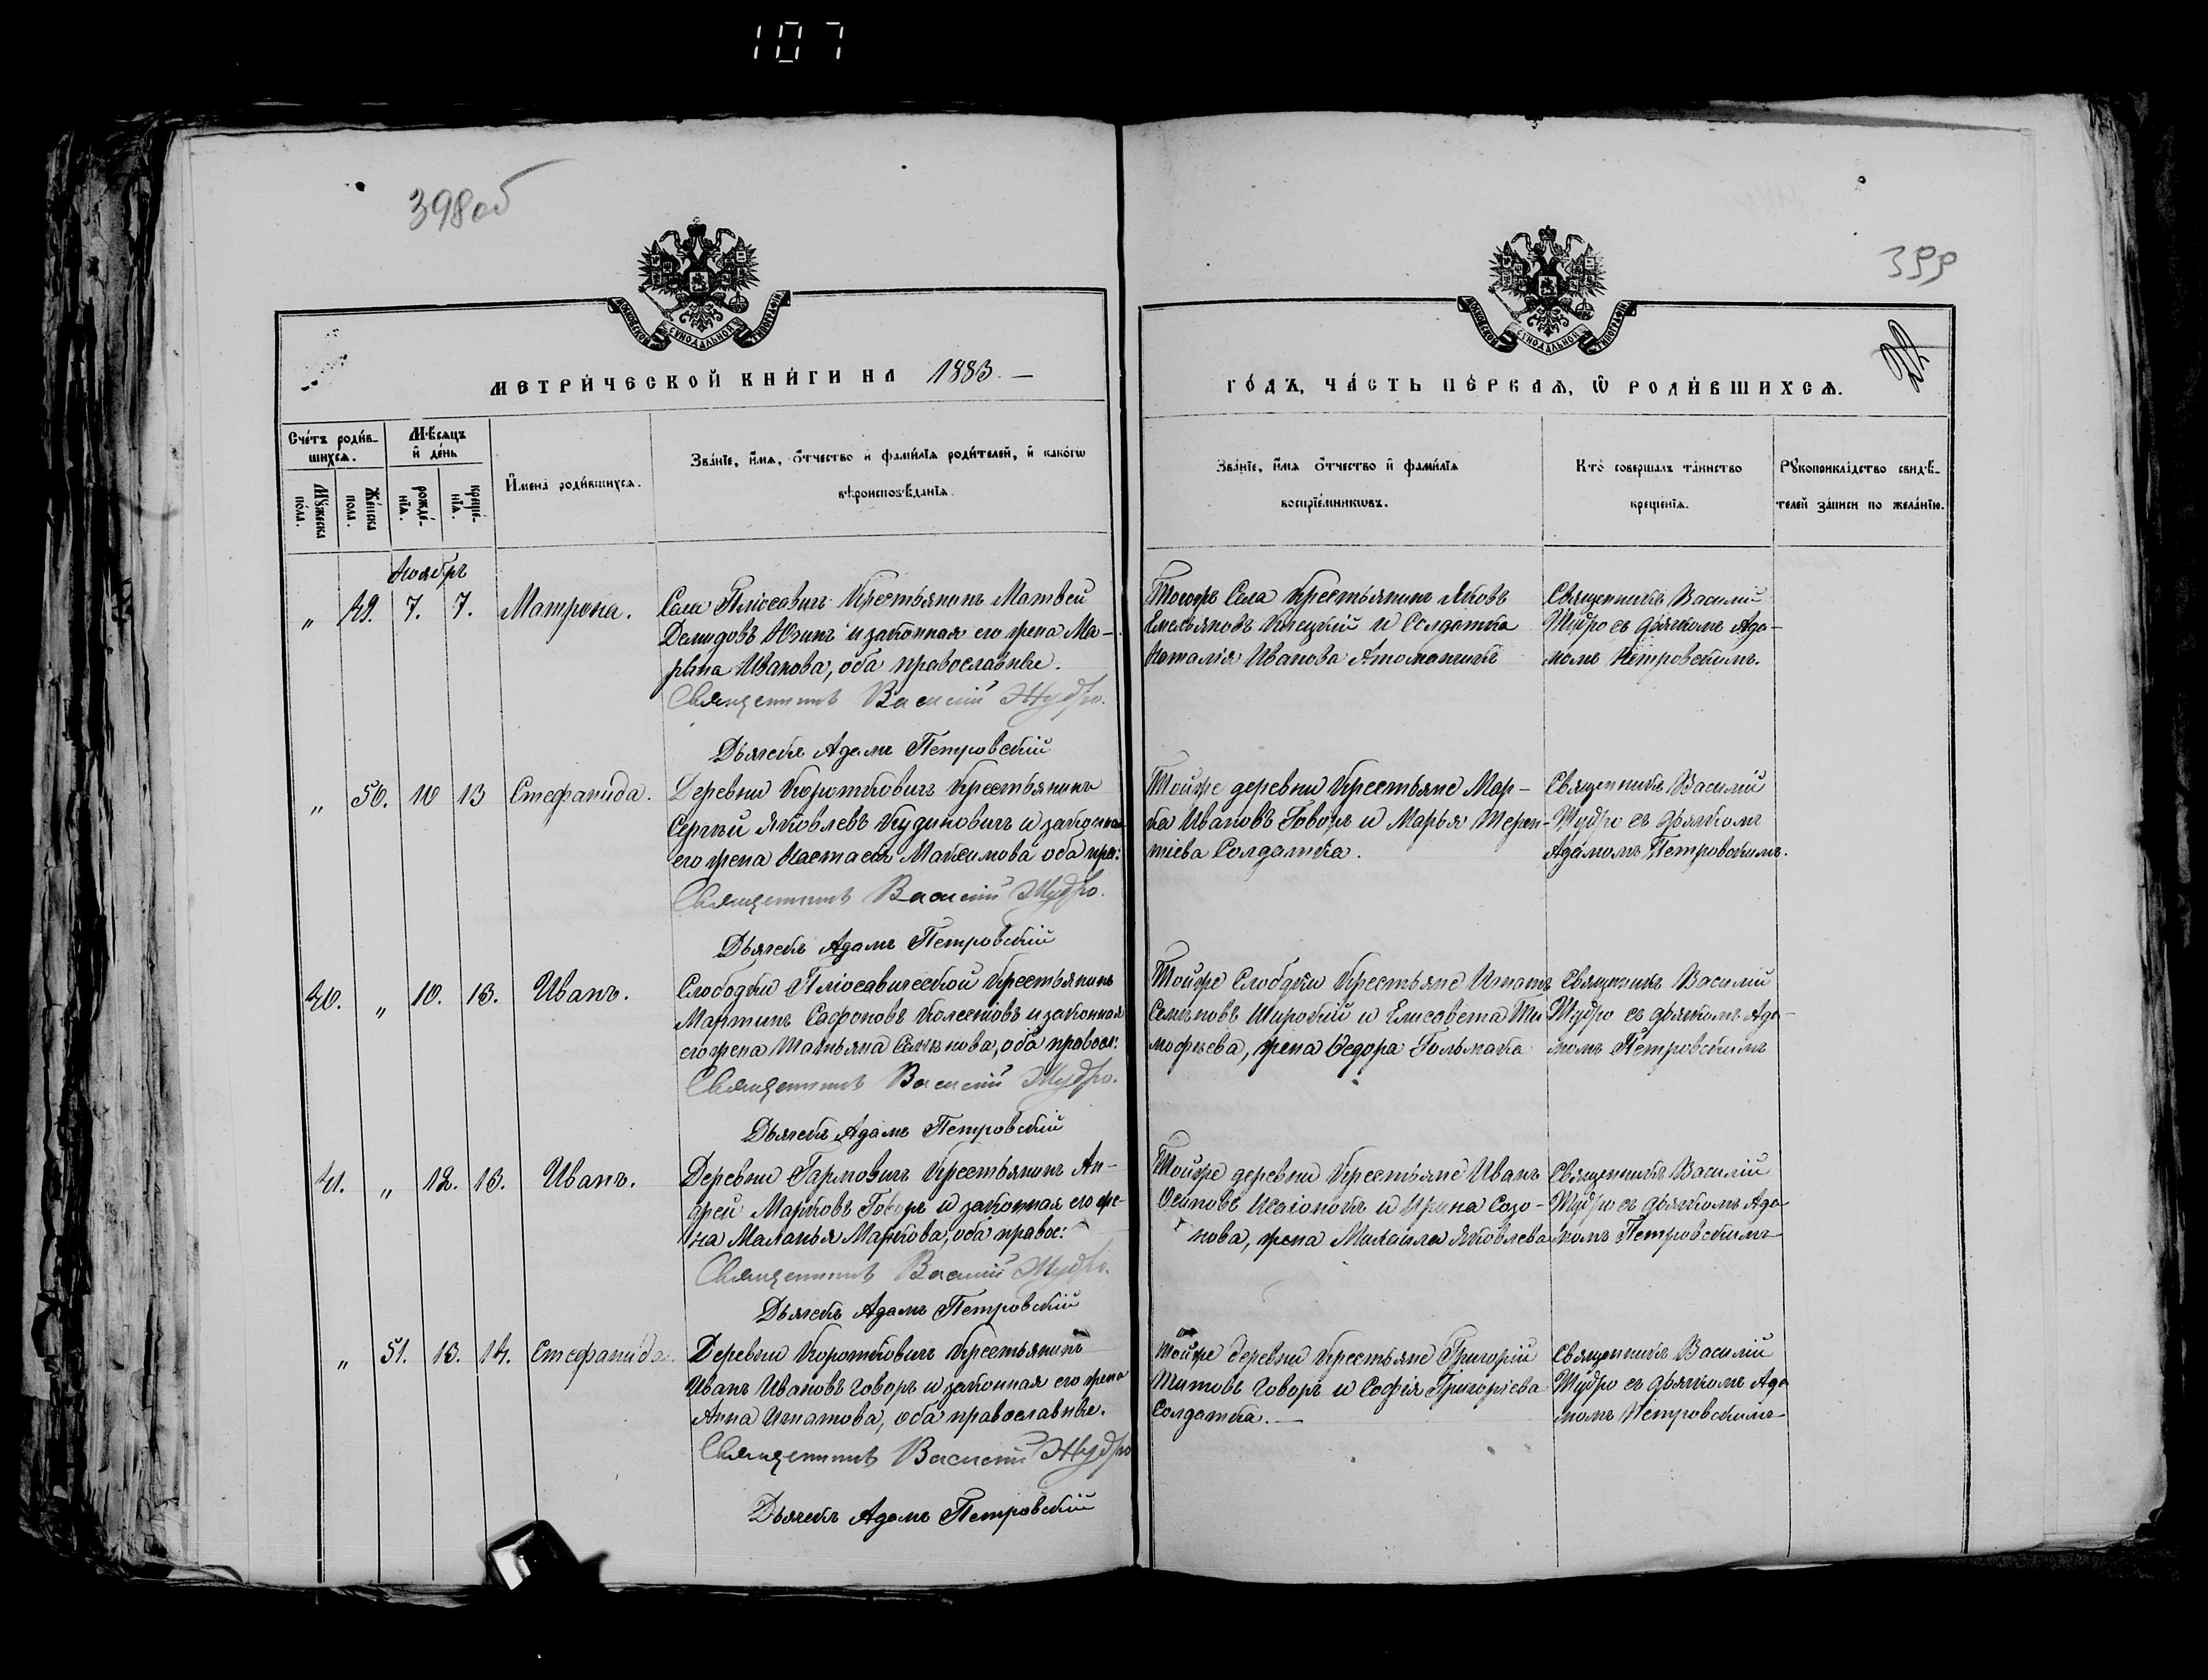 107
398об
399
МОСКОВСКОЙ СѴНОДАЛЬНОЙ ТИПОГРАФІИ
МОСКОВСКОЙ СѴНОДАЛЬНОЙ ТИПОГРАФІИ
МЕТРИ́ЧЕСКОЙ КНИ́ГИ НА 1883. —
ГО́ДЪ, ЧА́СТЬ ПЕ́РВАЯ, Ѿ РОДИ́ВШИХСЯ.
Сче́тъ роди́в-
шихся.
Мꙋжеска
по́ла.
Же́нска
пола.
Мѣсяцъ
и҆ де́нь
рожде́-
нїѧ.
креще́-
нїѧ.
И҆мена̀ роди́вшихся.
Зва́нїе, и҆́мя, ѻ҆́тчество и҆ фами́лїя роди́телей, и҆ како́гѡ
вѣроисповѣ́данїя.
Зва́нїе, и҆́мя ѻ҆́тчество и҆ фами́лїя
воспрїе́мникѡвъ.
Кто̀ соверша́лъ та́инство
креще́нїя.
Рꙋкоприкла́дство свидѣ́-
телей за́писи по жела́нїю.
Ноябрь
„ 49. 7. 7. Матрона.
Села Плюсавичъ Крестьянинъ Матвей
Демидовъ и законная его жена Ма-
рьна Иванова, оба православные.
Священникъ Василій Мудро.
Дьячекъ Адамъ Петровскій
Тогожъ Села Крестьянинъ Яковъ
Емельяновъ и Солдатка
Наталія Иванова
Священникъ Василій
Мудро съ дьячкомъ Ада-
момъ Петровскимъ.
„ 50. 10 13 Стефанида.
Деревни Коротковичъ Крестьянинъ
Сергѣй Яковлевъ Кудиновичъ и законная
его жена Настасія Максимова оба пра:
Священникъ Василій Мудро.
Дьячекъ Адамъ Петровскій
Тойже деревни Крестьяне Мар-
ка Ивановъ Говоръ и Марья Терен-
тіева Солдатка.
Священникъ Василій
Мудро съ дьячкомъ
Адамомъ Петровскимъ.
40. „ 10. 13. Иванъ.
Слободки Плюсавической Крестьянинъ
Мартинъ Сафоновъ и законная
его жена Татьяна Семѣнова, оба правосл:
Священникъ Василій Мудро.
Дьячекъ Адамъ Петровскій
Тойже Слободки Крестьяне Игнатъ
Семѣновъ Широкій и Елисавета Ти-
мофѣева, жена Ѳедора Гольмака
Священникъ Василій
Мудро съ дьячкомъ Ада-
момъ Петровскимъ
41. „ 12. 13. Иванъ.
Деревни Гармовичъ Крестьянинъ Ан-
дрей Марковъ Говоръ и законная его же-
на Маланья Маркова, оба правос:
Священникъ Василій Мудро.
Дьячекъ Адамъ Петровскій
Тойже деревни Крестьяне Иванъ
Осиповъ и Ирина Созо-
нова, жена Михаила Яковлева
Священникъ Василій
Мудро съ дьячкомъ Ада-
момъ Петровскимъ
„ 51. 13. 14. Стефанида.
Деревни Коротковичъ Крестьянинъ
Иванъ Ивановъ Говоръ и законная его жена
Анна Игнатова, оба православные.
Священникъ Василій Мудро
Дьячекъ Адамъ Петровскій
Тойже деревни Крестьяне Григорій
Титовъ Говоръ и Софія Григоріева
Солдатка. —
Священникъ Василій
Мудро съ дьячкомъ Ада
момъ Петровскимъ